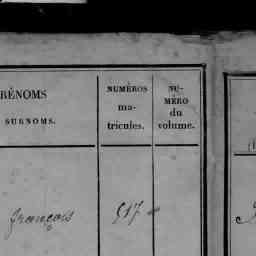 PRÉNOMS
SURNOMS.
NUMÉROS
ma-
tricules.
NU-
MÉRO
du
volume.
françois 517